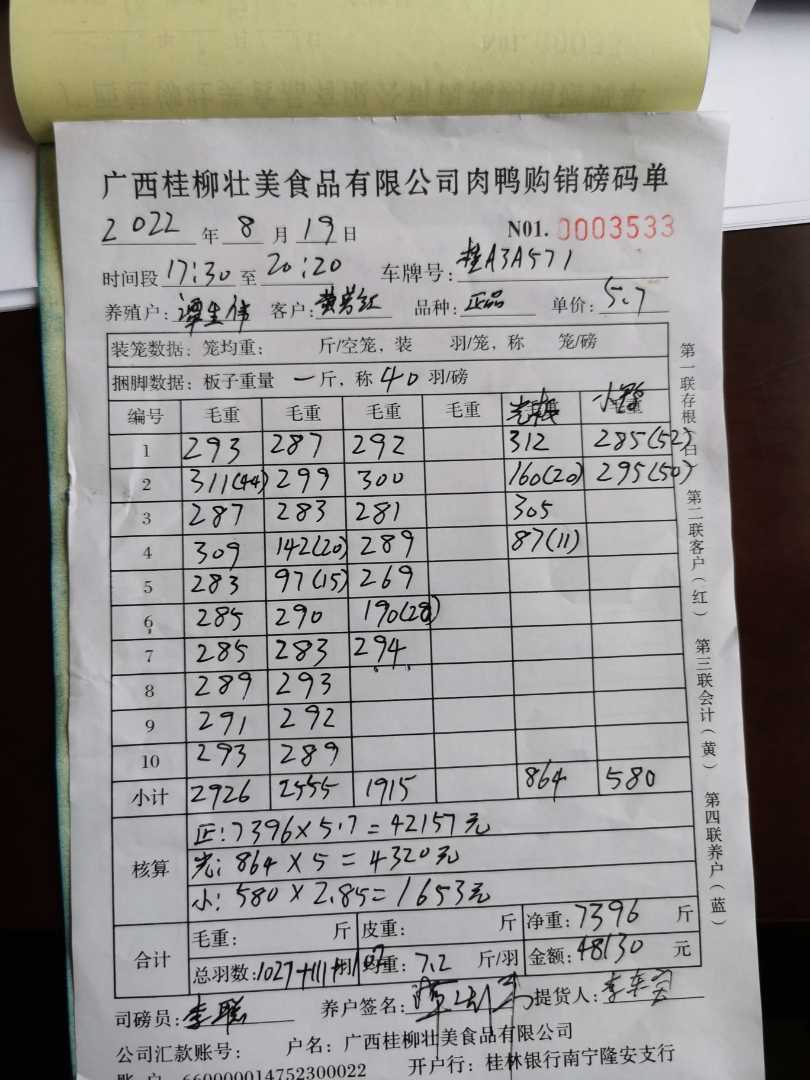 广西桂柳壮美食品有限公司肉鸭购销磅码单
2022年8月19日 N01.0003533
时间段17:30至20:20 车牌号:桂A3A571
养殖户: 客户: 品种:正品 单价:5.7
装笼数据:笼均重: 斤/空笼,装 羽/笼,称 笼/磅
捆脚数据:板子重量 一斤,称40羽/磅
编号 毛重 毛重 毛重 毛重
1 293 287 292 312 285(52)
2 311(44) 299 300 160(20) 295(50)
3 287 283 281 305
4 309 142(20) 289 87(11)
5 283 97(15) 269
6 285 290 190(28)
7 285 283 294
8 289 293
9 291 292
10 293 289
小计 2926 2555 1915 864 580
核算
正:7396×5.7=42157元
光:864×5=4320元
小:580×2.85=1653元
合计
毛重: 斤 皮重: 斤 净重:7396 斤
总羽数:1027+111+107 均重:7.2 斤/羽 金额:48130 元
司磅员: 养户签名: 提货人:
公司汇款账号: 户名:广西桂柳壮美食品有限公司
账户 660000014752300022 开户行:桂林银行南宁隆安支行
第一联存根(白) 第二联客户(红) 第三联会计(黄) 第四联养户(蓝)